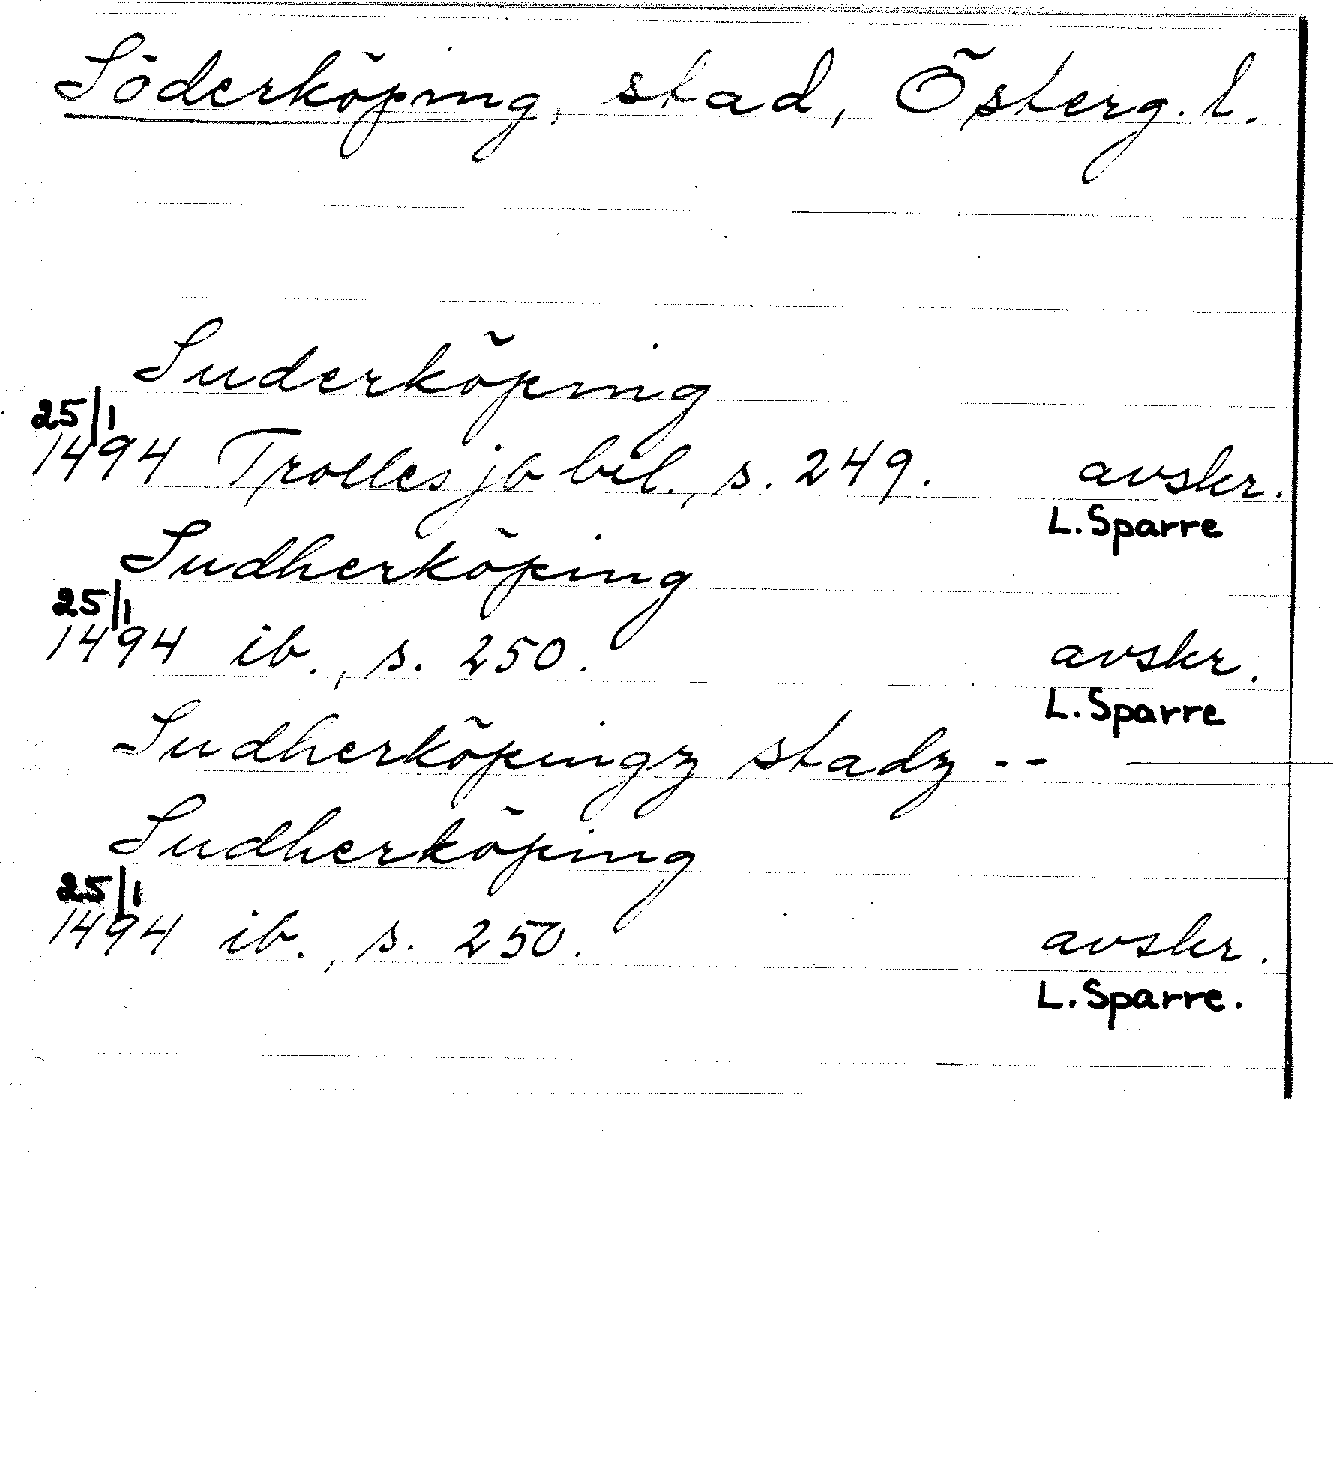 Söderköping, stad, Österg. l.
Suderköping
25/1
1494 Trolles jb bil., s. 249. avskr.
L. Sparre
Sudherköping
25/1
1494 ib., s. 250. avskr.
L. Sparre
Sudherköpingz stadz --
Sudherköping
25/1
1494 ib., s. 250. avskr.
L. Sparre.